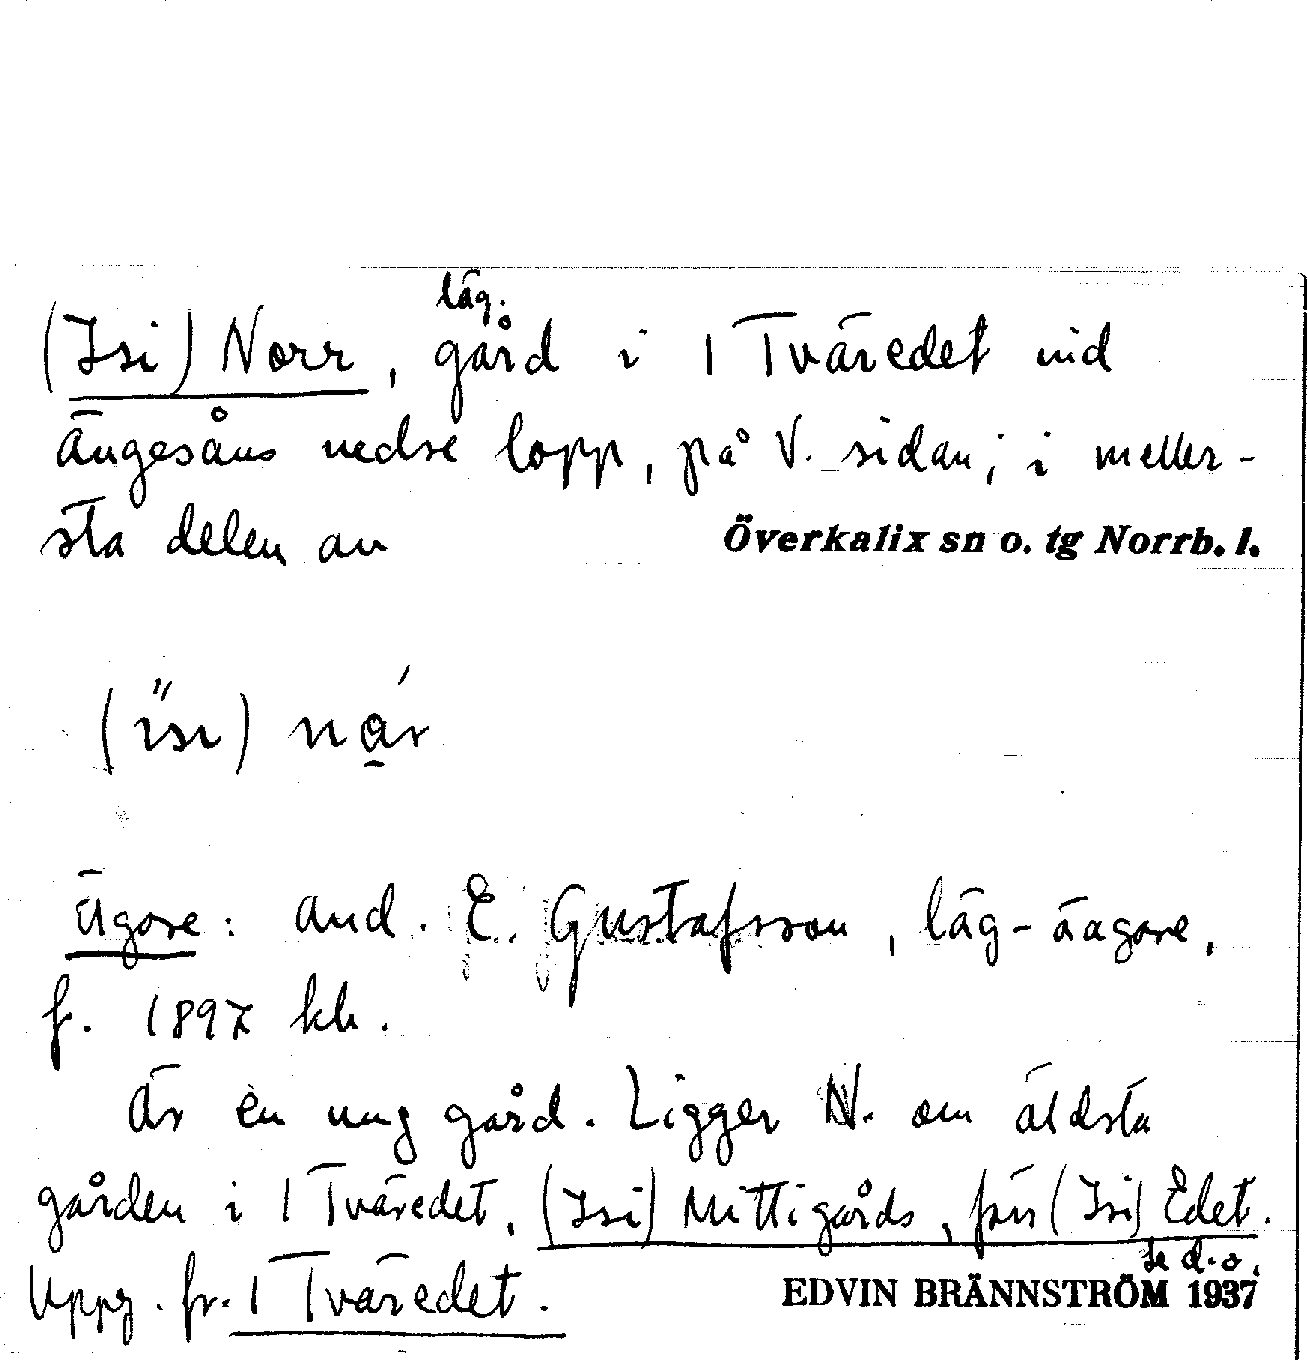 läg.
(Isi) Norr, gård i 1 Tväredet vid
Ängesåns nedre lopp, på V. sidan, i meller-
sta delen av
Överkalix sn o. tg Norrb. l.
(ïsi) når
Ägare: And. E. Gustafsson, läg-ägare,
f. 1897 kh.
Är en ung gård. Ligger N. om äldsta
gården i 1 Tväredet, (Isi) Mittigårds, förr (Isi) Edet.
se d. o.
Uppg. fr. 1 Tväredet.
EDVIN BRÄNNSTRÖM 1937